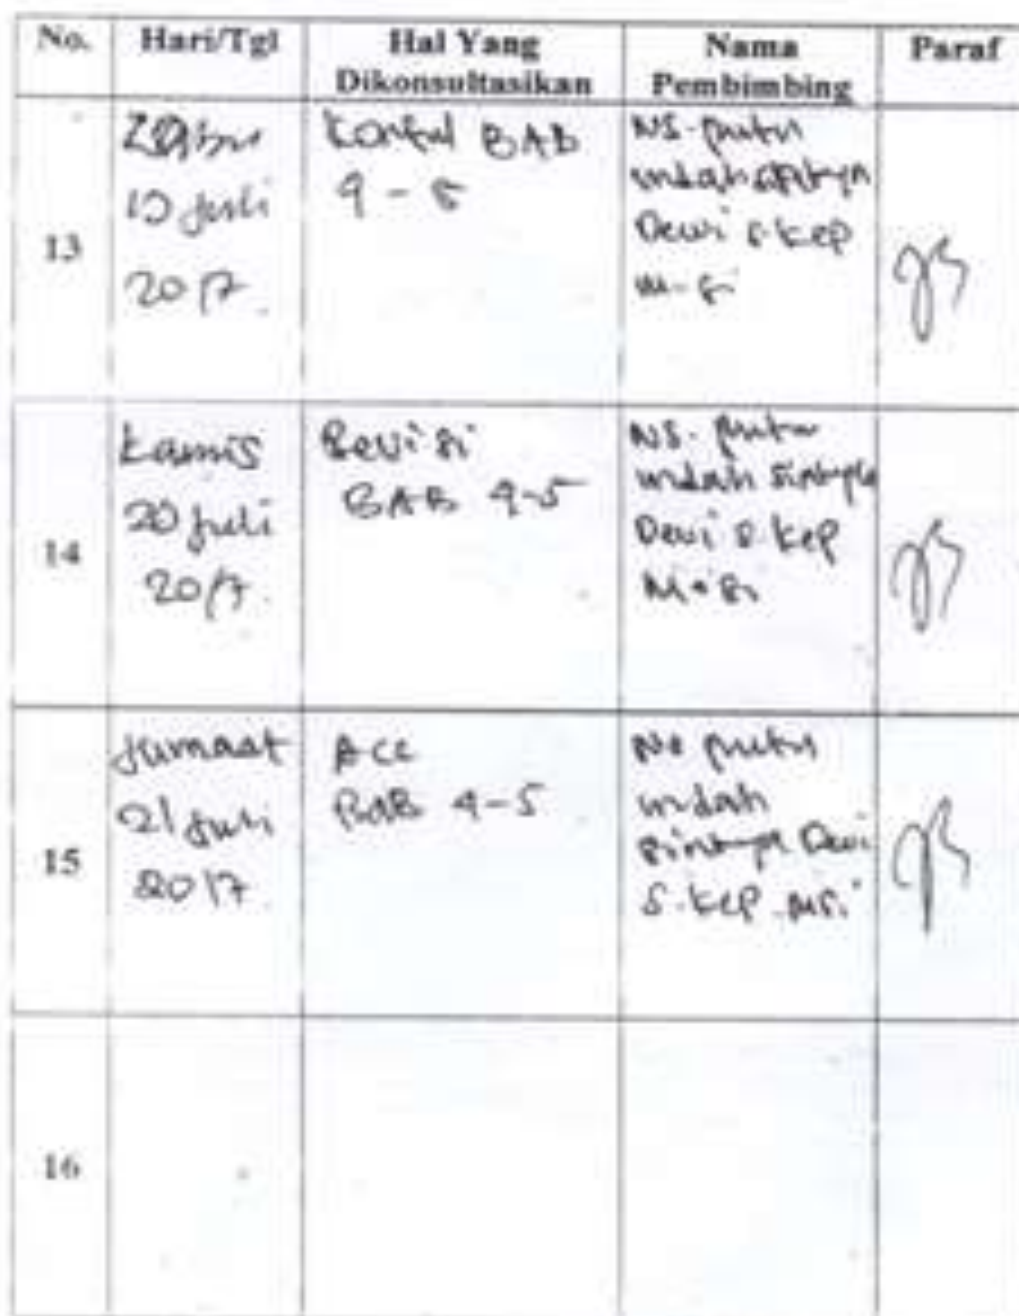 No. Hari/Tgl Hal Yang Dikonsultasikan Nama Pembimbing Paraf
13
Juli
2017.
Konsul BAB
4 - 5
NS. Putri
indah
Dewi S.kep
M.si
14
Kamis
20 Juli
2017.
Revisi
BAB 4-5
NS. Putri
indah sintya
Dewi S.kep
M.si
15
Jumaat
21 Juli
2017.
ACC
BAB 4-5
Ns Putri
indah
sintya Dewi
S.kep .MSi
16